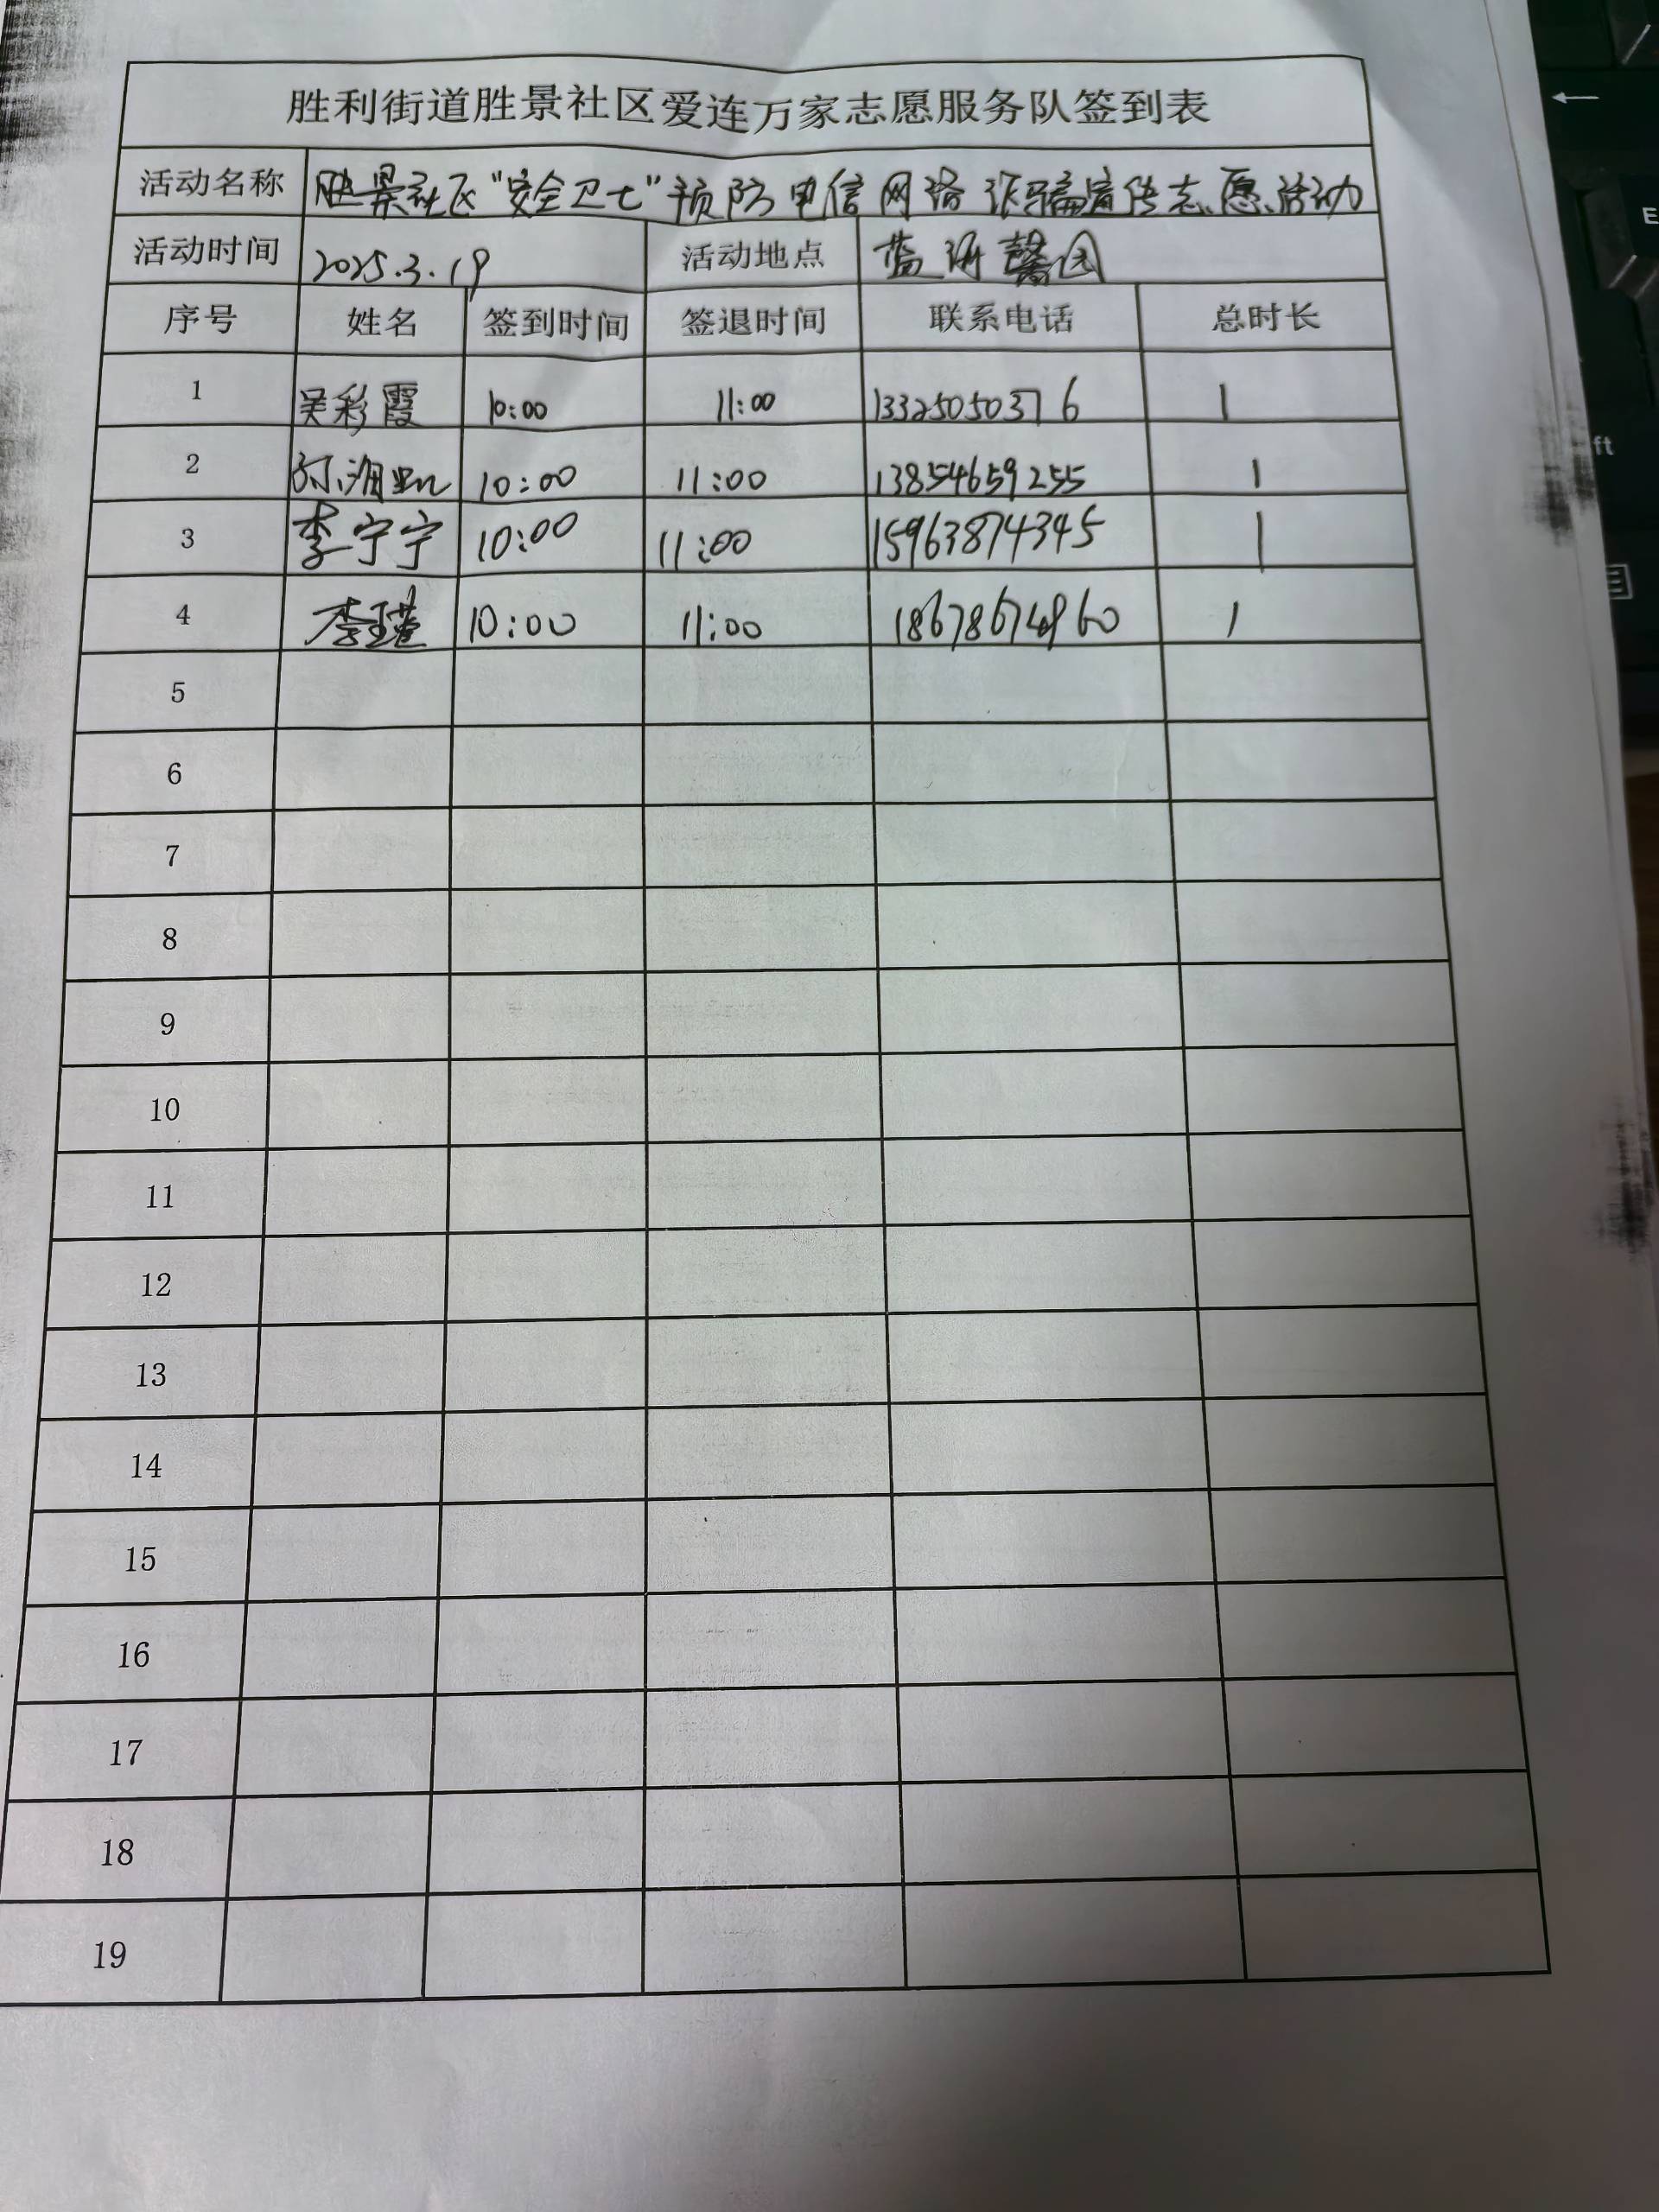 胜利街道胜景社区爱连万家志愿服务队签到表
活动名称 胜景社区“安全卫士”预防电信网络诈骗宣传志愿活动
活动时间 2025.3.19 活动地点 蓝 馨园
序号 姓名 签到时间 签退时间 联系电话 总时长
1 吴彩霞 10:00 11:00 13325050376 1
2 10:00 11:00 13854659255 1
3 李宁宁 10:00 11:00 15963874345 1
4 李瑾 10:00 11:00 1
5
6
7
8
9
10
11
12
13
14
15
16
17
18
19